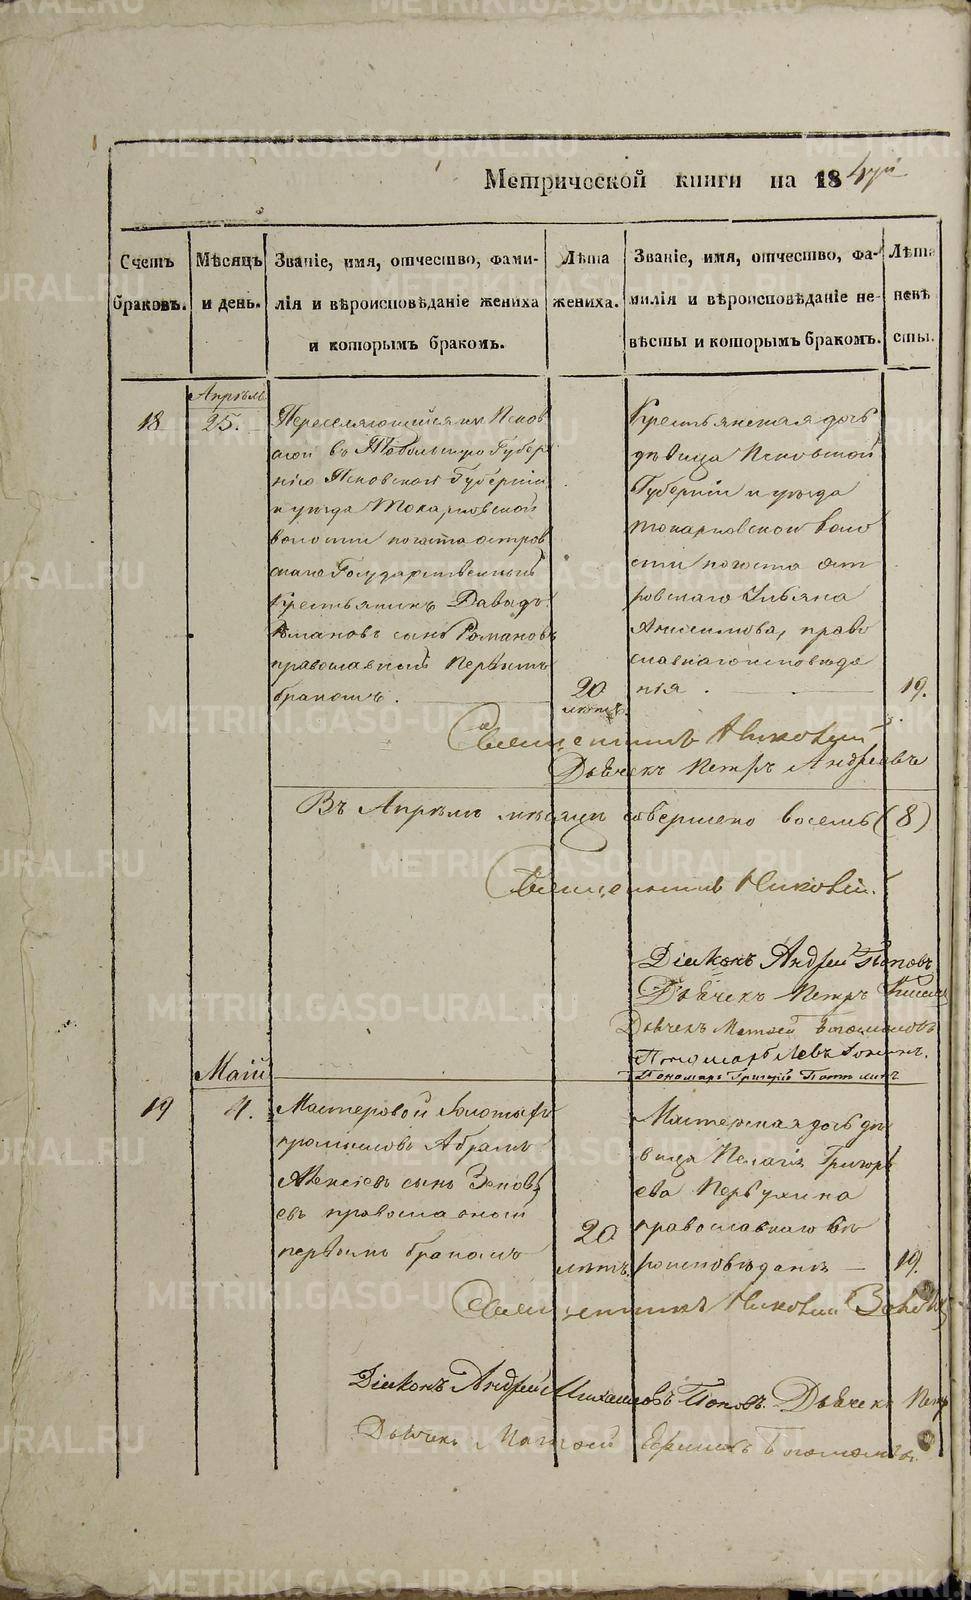 METRIKI.GASO-URAL.RU
Метрической книги на 184
Счетъ браковъ.
Мѣсяцъ и день.
Званіе, имя, отчество, фами-
лія и вѣроисповѣданіе жениха
и которымъ бракомъ.
Лѣта
жениха.
Званіе, имя, отчество, фа-
милія и вѣроисповѣданіе не-
вѣсты и которымъ бракомъ.
Лѣта
невѣ
сты.
Апрѣль
18
25.
Переселяющійся из Псков
ской въ Тобольскую Губер
нію Псковской Губерніи
и уѣзда Токаревской
волости погоста остров
скаго Государственный
Крестьянинъ Давыдъ
Романовъ сынъ Романовъ
православный первымъ
бракомъ.
20
лѣтъ.
Крестьянская дочь
дѣвица Псковской
Губерніи и уѣзда
токаревской воло
сти погоста ост
ровскаго Ульяна
Анисимова, право
славнаго исповѣда
нія.
19.
Священникъ Николай
Дьячекъ Петръ Андреевъ
Въ Апрѣлѣ мѣсяцѣ совершено восемь (8)
Священникъ Николай
Діаконъ Андрей Поповъ
Дьячекъ Петръ
Дьячекъ Матвей Богомоловъ
Пономарь Левъ
Пономарь Григорій
Маій
19
4.
Мастеровой Золотыхъ
промысловъ Абрамъ
Алексѣевъ сынъ Зиновь
евъ православный
первымъ бракомъ
20
лѣтъ.
Мастерская дочь дѣ
вица Пелагія Григорь
ева Первухина
православнаго вѣ
роисповѣданія
19.
Священникъ Николай
Діаконъ Андрей Михаиловъ Поповъ. Дьячекъ Петр
Дьячекъ Матвей Ефимовъ Богомоловъ.